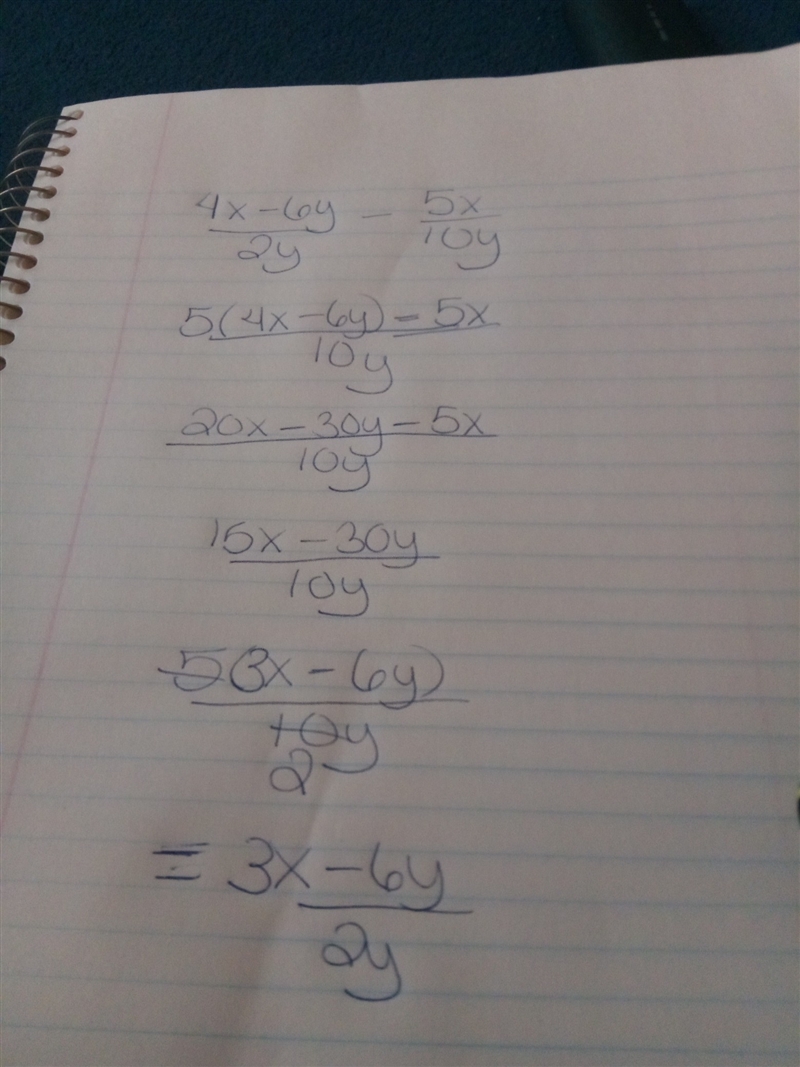 4x - 6y / 2y - 5x / 10y
5(4x - 6y) - 5x / 10y
20x - 30y - 5x / 10y
15x - 30y / 10y
5(3x - 6y) / 10y
2
= 3x - 6y / 2y